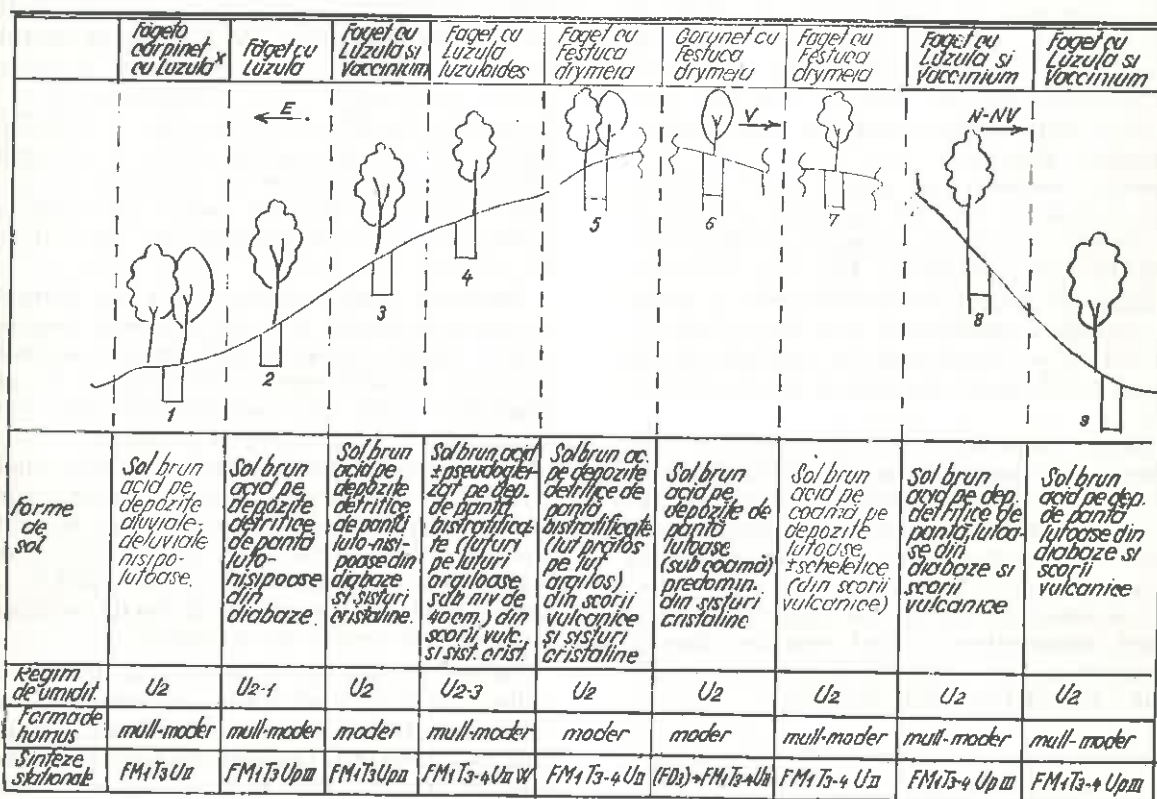 Fageto
carpinet
cu Luzula x
Făget cu
Luzula
Făget cu
Luzula și
Vaccinium
Făget cu
Luzula
luzuloides
Făget cu
Festuca
drymeia
Gorunet cu
Festuca
drymeia
Făget cu
Festuca
drymeia
Făget cu
Luzula și
Vaccinium
Făget cu
Luzula și
Vaccinium
E
V
N-NV
1
2
3
4
5
6
7
8
9
Forme
de
sol
Sol brun
acid pe
depozite
aluviale,
deluviale
nisipo-
lutoase.
Sol brun
acid pe
depozite
detritice
de pantă
luto-
nisipoase
din
diabaze.
Sol brun
acid pe
depozite
detritice
de pantă
luto-nisi-
poase din
diabaze
și șisturi
cristaline.
Sol brun acid
±pseudoglei-
zat pe dep.
de pantă
bistratifica-
te (luturi
pe luturi
argiloase,
sub niv de
40cm.) din
scorii vulc.
și sist. crist.
Sol brun ac.
pe depozite
detritice de
pantă
bistratificate
(lut prăfos
pe lut
argilos)
din scorii
vulcanice
și șisturi
cristaline
Sol brun
acid pe
depozite de
pantă
lutoase
(sub coamă)
predomin.
din șisturi
cristaline
Sol brun
acid pe
coamă pe
depozite
lutoase,
±scheletice,
(din scorii
vulcanice)
Sol brun
acid pe dep.
detritice de
pantă, lutoa-
se din
diabaze și
scorii
vulcanice
Sol brun
acid pe dep.
de pantă
lutoase din
diabaze și
scorii
vulcanice
Regim
de umidit.
U2
U2-1
U2
U2-3
U2
U2
U2
U2
U2
Forma de
humus
mull-moder
mull-moder
moder
mull-moder
moder
moder
mull-moder
mull-moder
mull-moder
Sinteze
staționale
FM1T3UII
FM1T3UpIII
FM1T3UpII
FM1T3-4UIIW
FM1T3-4UII
(FD3)→FM1T3-4UII
FM1T3-4UII
FM1T3-4UpIII
FM1T3-4UpIII